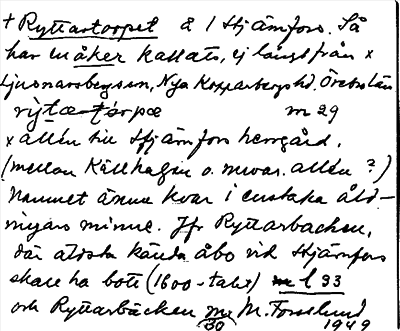 + Ryttartorpet å 1 Hjämfors. Så
har en åker kallats, ej långt från x
Ljusnarsbergs sn, Nya Kopparbergs hd. Örebro län
rỳtæ-tɔrpæ m 29
x allén till Hjämfors herrgård,
(mellan Källhagen o. nuvar. allén ?)
Namnet ännu kvar i enstaka åld-
ringars minne. Jfr Ryttarbacken,
där äldsta kända åbo vid Hjämfors
skall ha bott (1600-talet) m l 33
och Ryttarbäcken m 30 M. Forslund
1949